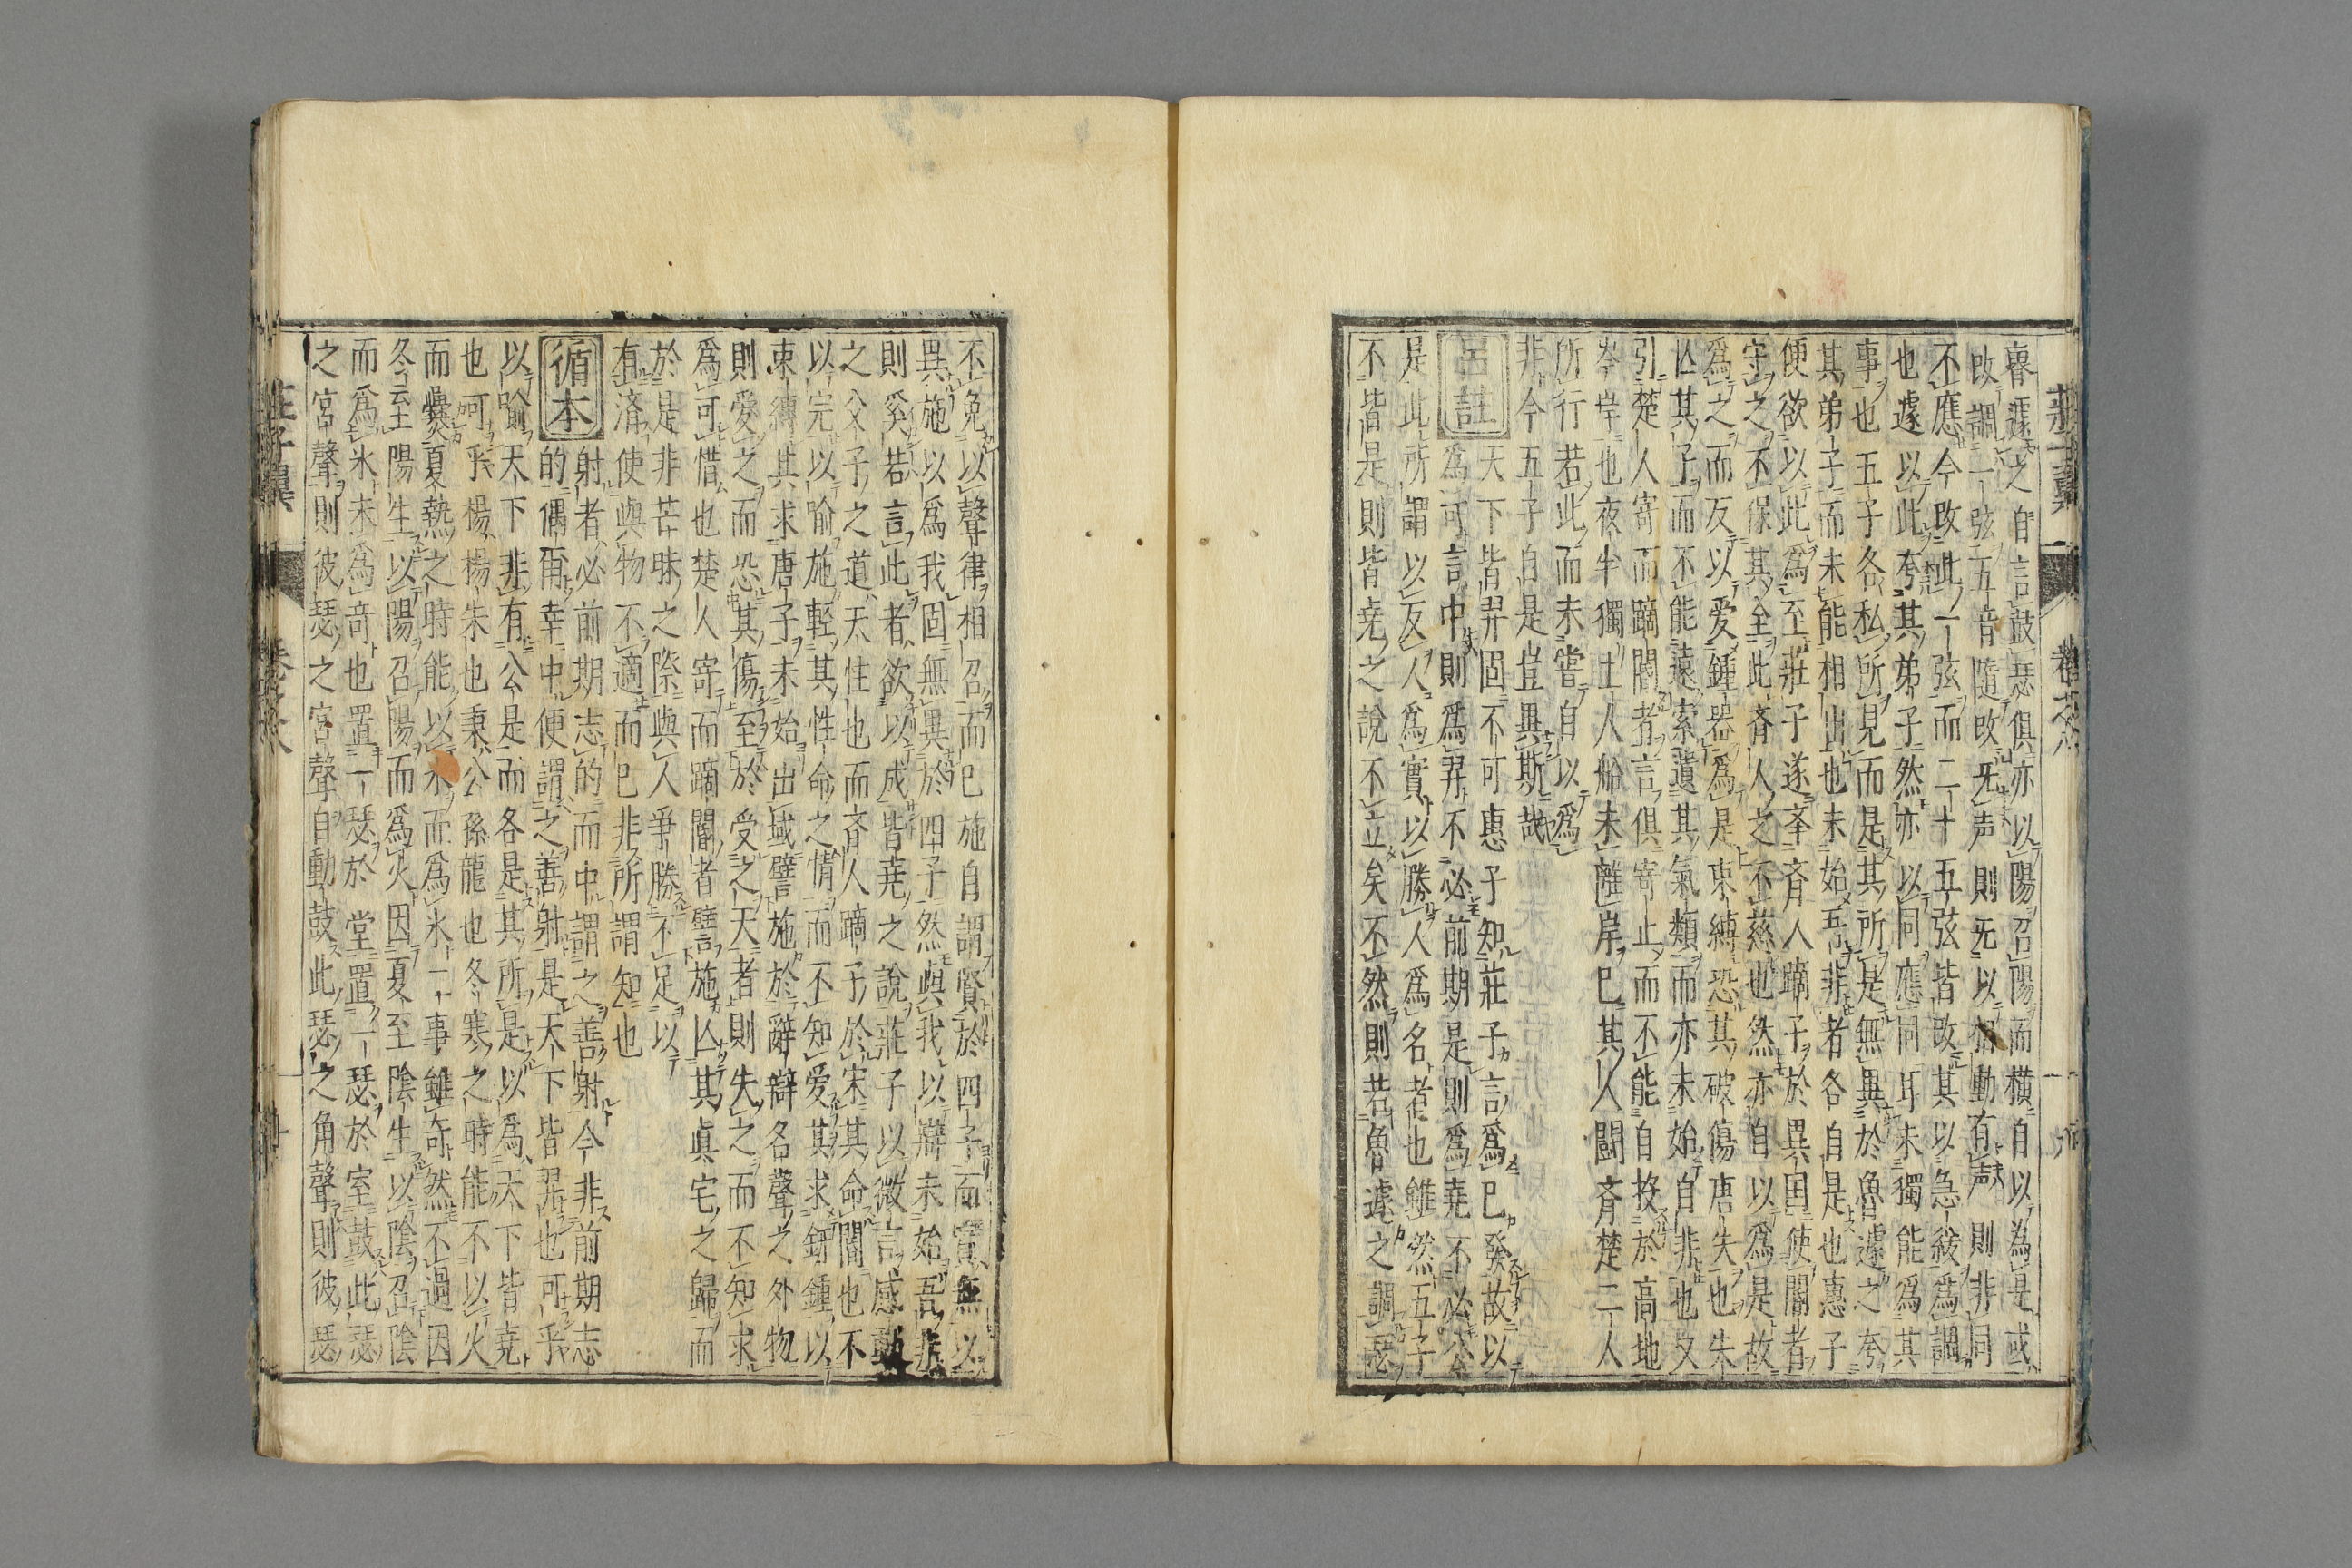 魯遽之自言鼓瑟俱亦以陽召陽而横自以為是或
改調一弦五音隨改旡声則旡以相動有声則非同
不應今改此一弦而二十五弦皆改其以急緩為調
也遽以此夸其弟子然亦以同應同耳未獨能爲其
事也五子各私所見而是其所是無異於魯遽之夸
其弟子而未能相出也未始吾非者各自是也惠子
便欲以此爲至莊子遂䇿斉人蹢子於異国使閽者
守之不保其全此斉人之不慈也然亦自以爲是故
爲之而反以愛鍾器爲是束縛恐其破傷唐失也失
亾其子而不能遠索遺其氣類而亦未始自非也又
引楚人寄而蹢閽者言俱寄止而不能自投於高地
岑岸也夜半獨上人船未離岸已其人鬬斉楚二人
所行若此而未嘗自以爲
非今五子自是豈異斯哉
呂註
天下皆羿固不可惠子知莊子言爲已發故以
爲可言中則爲羿不必前期是則爲堯不必公
是此所謂以反人爲實以勝人爲名者也雖然五子
不皆是則皆堯之說不立矣不然則若魯遽之調瑟
莊子翼
卷之六
不免以聲律相召而已施自謂賢於四子而實無以
異施以爲我固無異於四子然與我以辯未始吾非
則奚若言此者欲以成皆堯之說莊子以微言感動
之父子之道天性也而斉人蹢子於宋其命閽也不
以完以喻施輕其性命之情而不知愛其求鈃鍾以
束縛其求唐子未始出域譬施於辭辯名聲之外物
則愛之而恐其傷至於受之天者則失之而不知求
爲可惜也楚人寄而蹢閽者譬施亾其眞宅之歸而
於是非苦昧之際與人爭勝不足以
有済使與物不適而已非所謂知也
循本
射者必前期志的而中謂之善射今非前期志
的偶爾幸中便謂之善射是天下皆羿也可乎
以喻天下非有公是而各是其所是以爲天下皆堯
也可乎楊楊朱也秉公孫龍也冬寒之時能不以火
而爨夏熱之時能以水而爲氷二事雖奇然不過因
冬至陽生以陽召陽而爲火因夏至陰生以陰召陰
而爲氷未爲奇也置一瑟於堂置一瑟於室鼓此瑟
之宮聲則彼瑟之宮聲自動鼓此瑟之角聲則彼瑟
莊子翼
卷之六